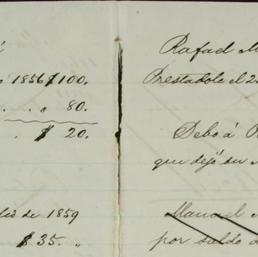 á
1856 $100.
. . . . a 80.
$ 20.
de 1859
$ 35. „
Rafael M
Prestadole el 2
Debo á R
que dejó su
Manuel
por saldo d